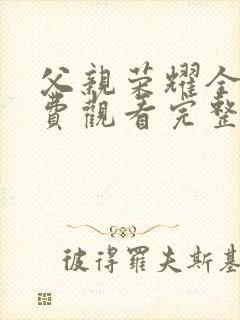 父親榮耀全
費觀看完整
彼得羅夫斯基